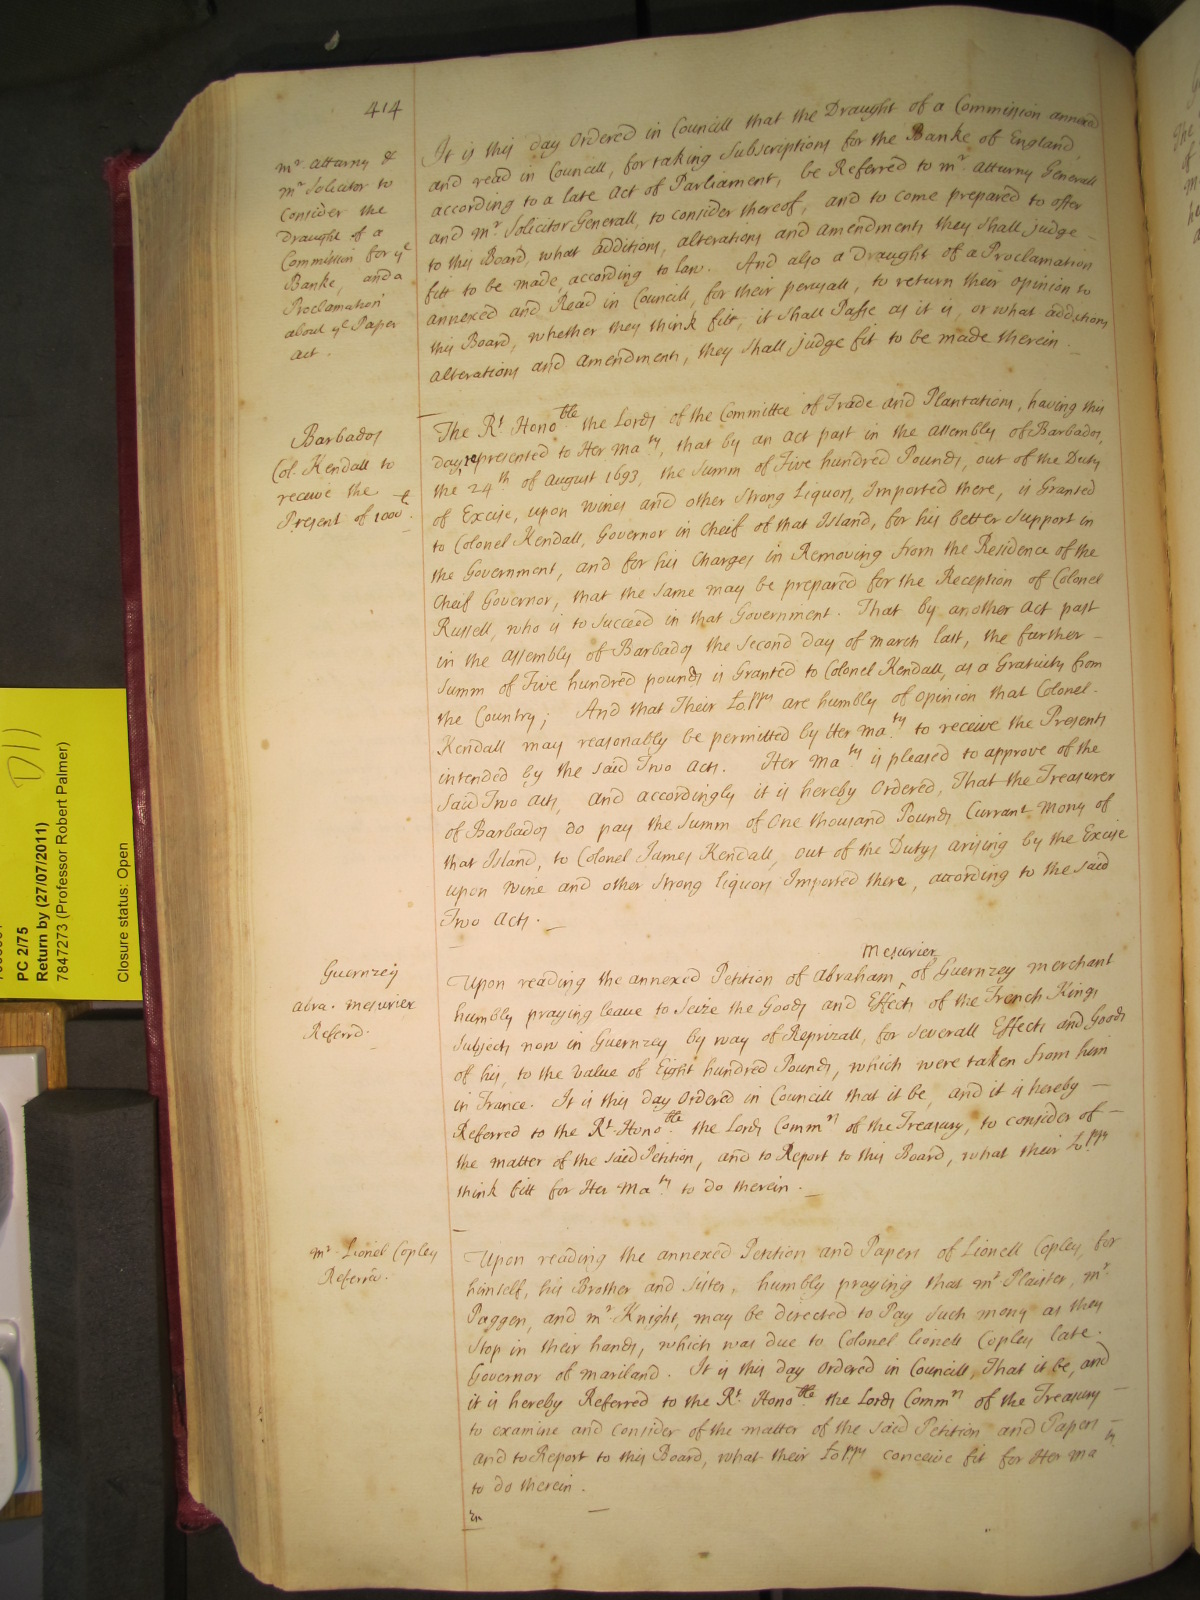 414
mr. Atturny &
mr Solicitor to
Consider the
Draught of a
Commission for ye
Banke, and a
Proclamation
about ye Paper
Act.
It is this day Ordered in Councill that the Draught of a Commission annexed
and read in Councill, for taking Subscriptions for the Banke of England
according to a late Act of Parliament, be Referred to mr. Atturny Generall
and mr. Solicitor Generall, to consider thereof, and to come prepared to offer
to this Board, what additions, alterations and amendments they shall judge
fitt to be made, according to law. And also a Draught of a Proclamation
annexed and Read in Councill, for their perusall, to return their opinion to
this Board, whether they think fitt, it shall Passe as it is, or what additions
alterations and amendments, they shall judge fit to be made therein.
Barbados
Col. Kendall to
receive the
Present of 1000£.
The Rt. Honoble the Lords of the Committee of Trade and Plantations, having this
day represented to Her Maty, that by an Act past in the Assembly of Barbados,
the 24th of August 1693, the Summ of Five hundred Pounds, out of the Duty
of Excise, upon Wines and other Strong Liquors, Imported there, is Granted
to Colonel Kendall, Governor in Cheif of that Island, for his better Support in
the Government, and for his Charges in Removing from the Residence of the
Cheif Governor, that the same may be prepared for the Reception of Colonel
Russell, who is to succeed in that Government. That by another Act past
in the Assembly of Barbados the Second day of March last, the further
Summ of Five hundred pounds is Granted to Colonel Kendall, as a Gratuity from
the Country; And that Their Lopps are humbly of opinion that Colonel
Kendall may reasonably be permitted by Her Maty to receive the Presents
intended by the said Two Acts. Her Maty is pleased to approve of the
Said Two Acts, and accordingly it is hereby Ordered, That the Treasurer
of Barbados do pay the Summ of One thousand Pounds Currant Mony of
that Island, to Colonel James Kendall, out of the Dutys arising by the Excise
upon Wine and other Strong Liquors Imported there, according to the said
Two Acts.
Guernzey
Abra. Mesurier
Referrd.
Mesurier
Upon reading the annexed Petition of Abraham ^ of Guernzey Merchant
humbly praying leave to Seize the Goods and Effects of the French Kings
Subjects now in Guernzey by way of Reprizall, for severall Effects and Goods
of his, to the value of Eight hundred Pounds, which were taken from him
in France. It is this day Ordered in Councill that it be, and it is hereby
Referred to the Rt. Honoble the Lords Commrs of the Treasury, to consider of
the matter of the said Petition, and to Report to this Board, what their Lopps
think fitt for Her Maty to do therein.
mr. Lionel Copley
Referrd.
Upon reading the annexed Petition and Papers of Lionell Copley, for
himself, his Brother and Sister, humbly praying that mr. Plaister, mr.
Paggen, and mr. Knight, may be directed to Pay such mony as they
Stop in their hands, which was due to Colonel Lionell Copley late
Governor of Mariland. It is this day Ordered in Councill, That it be, and
it is hereby Referred to the Rt. Honoble the Lords Commrs of the Treasury
to examine and Consider of the matter of the said Petition and Papers
and to Report to this Board, what their Lopps conceive fit for Her Maty
to do therein.
D11
PC 2/75
Return by (27/07/2011)
7847273 (Professor Robert Palmer)
Closure status: Open